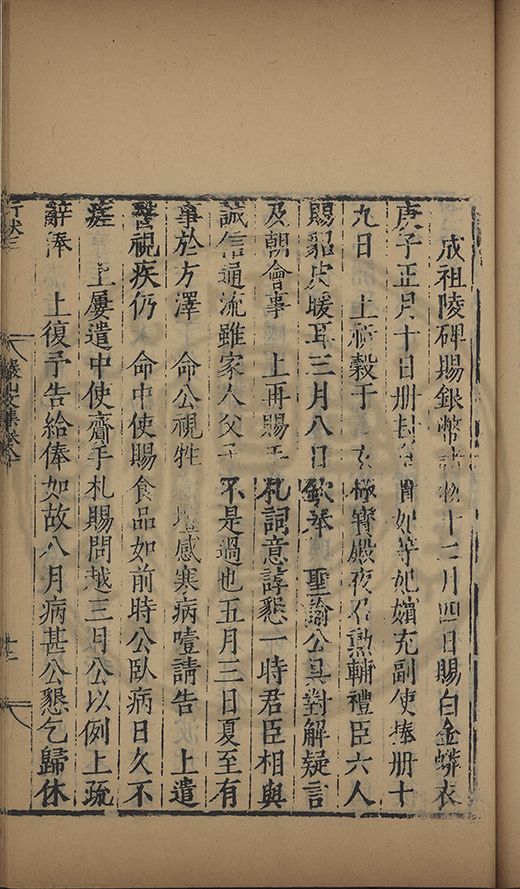 成祖陵碑賜銀幣 物十二月四日賜白金蟒衣
庚子正月十日册封 如等妃嬪充副使捧册十
九日 上祈穀于 玄極寶殿夜召勲輔禮臣六人
賜貂皮暖耳三月八日欽奉 聖諭公具對解疑言
及朝會事 上再賜手札詞意諄懇一時君臣相與
誠信通流雖家人父子不是過也五月三日夏至有
事於方澤 命公視牲 壇感寒病噎請告 上遣
醫視疾仍 命中使賜食品如前時公臥病日久不
痊 上屢遣中使齎手札賜問越三月公以例上疏
辭俸 上復予告給俸如故八月病甚公懇乞歸休
行狀 文集卷 十二